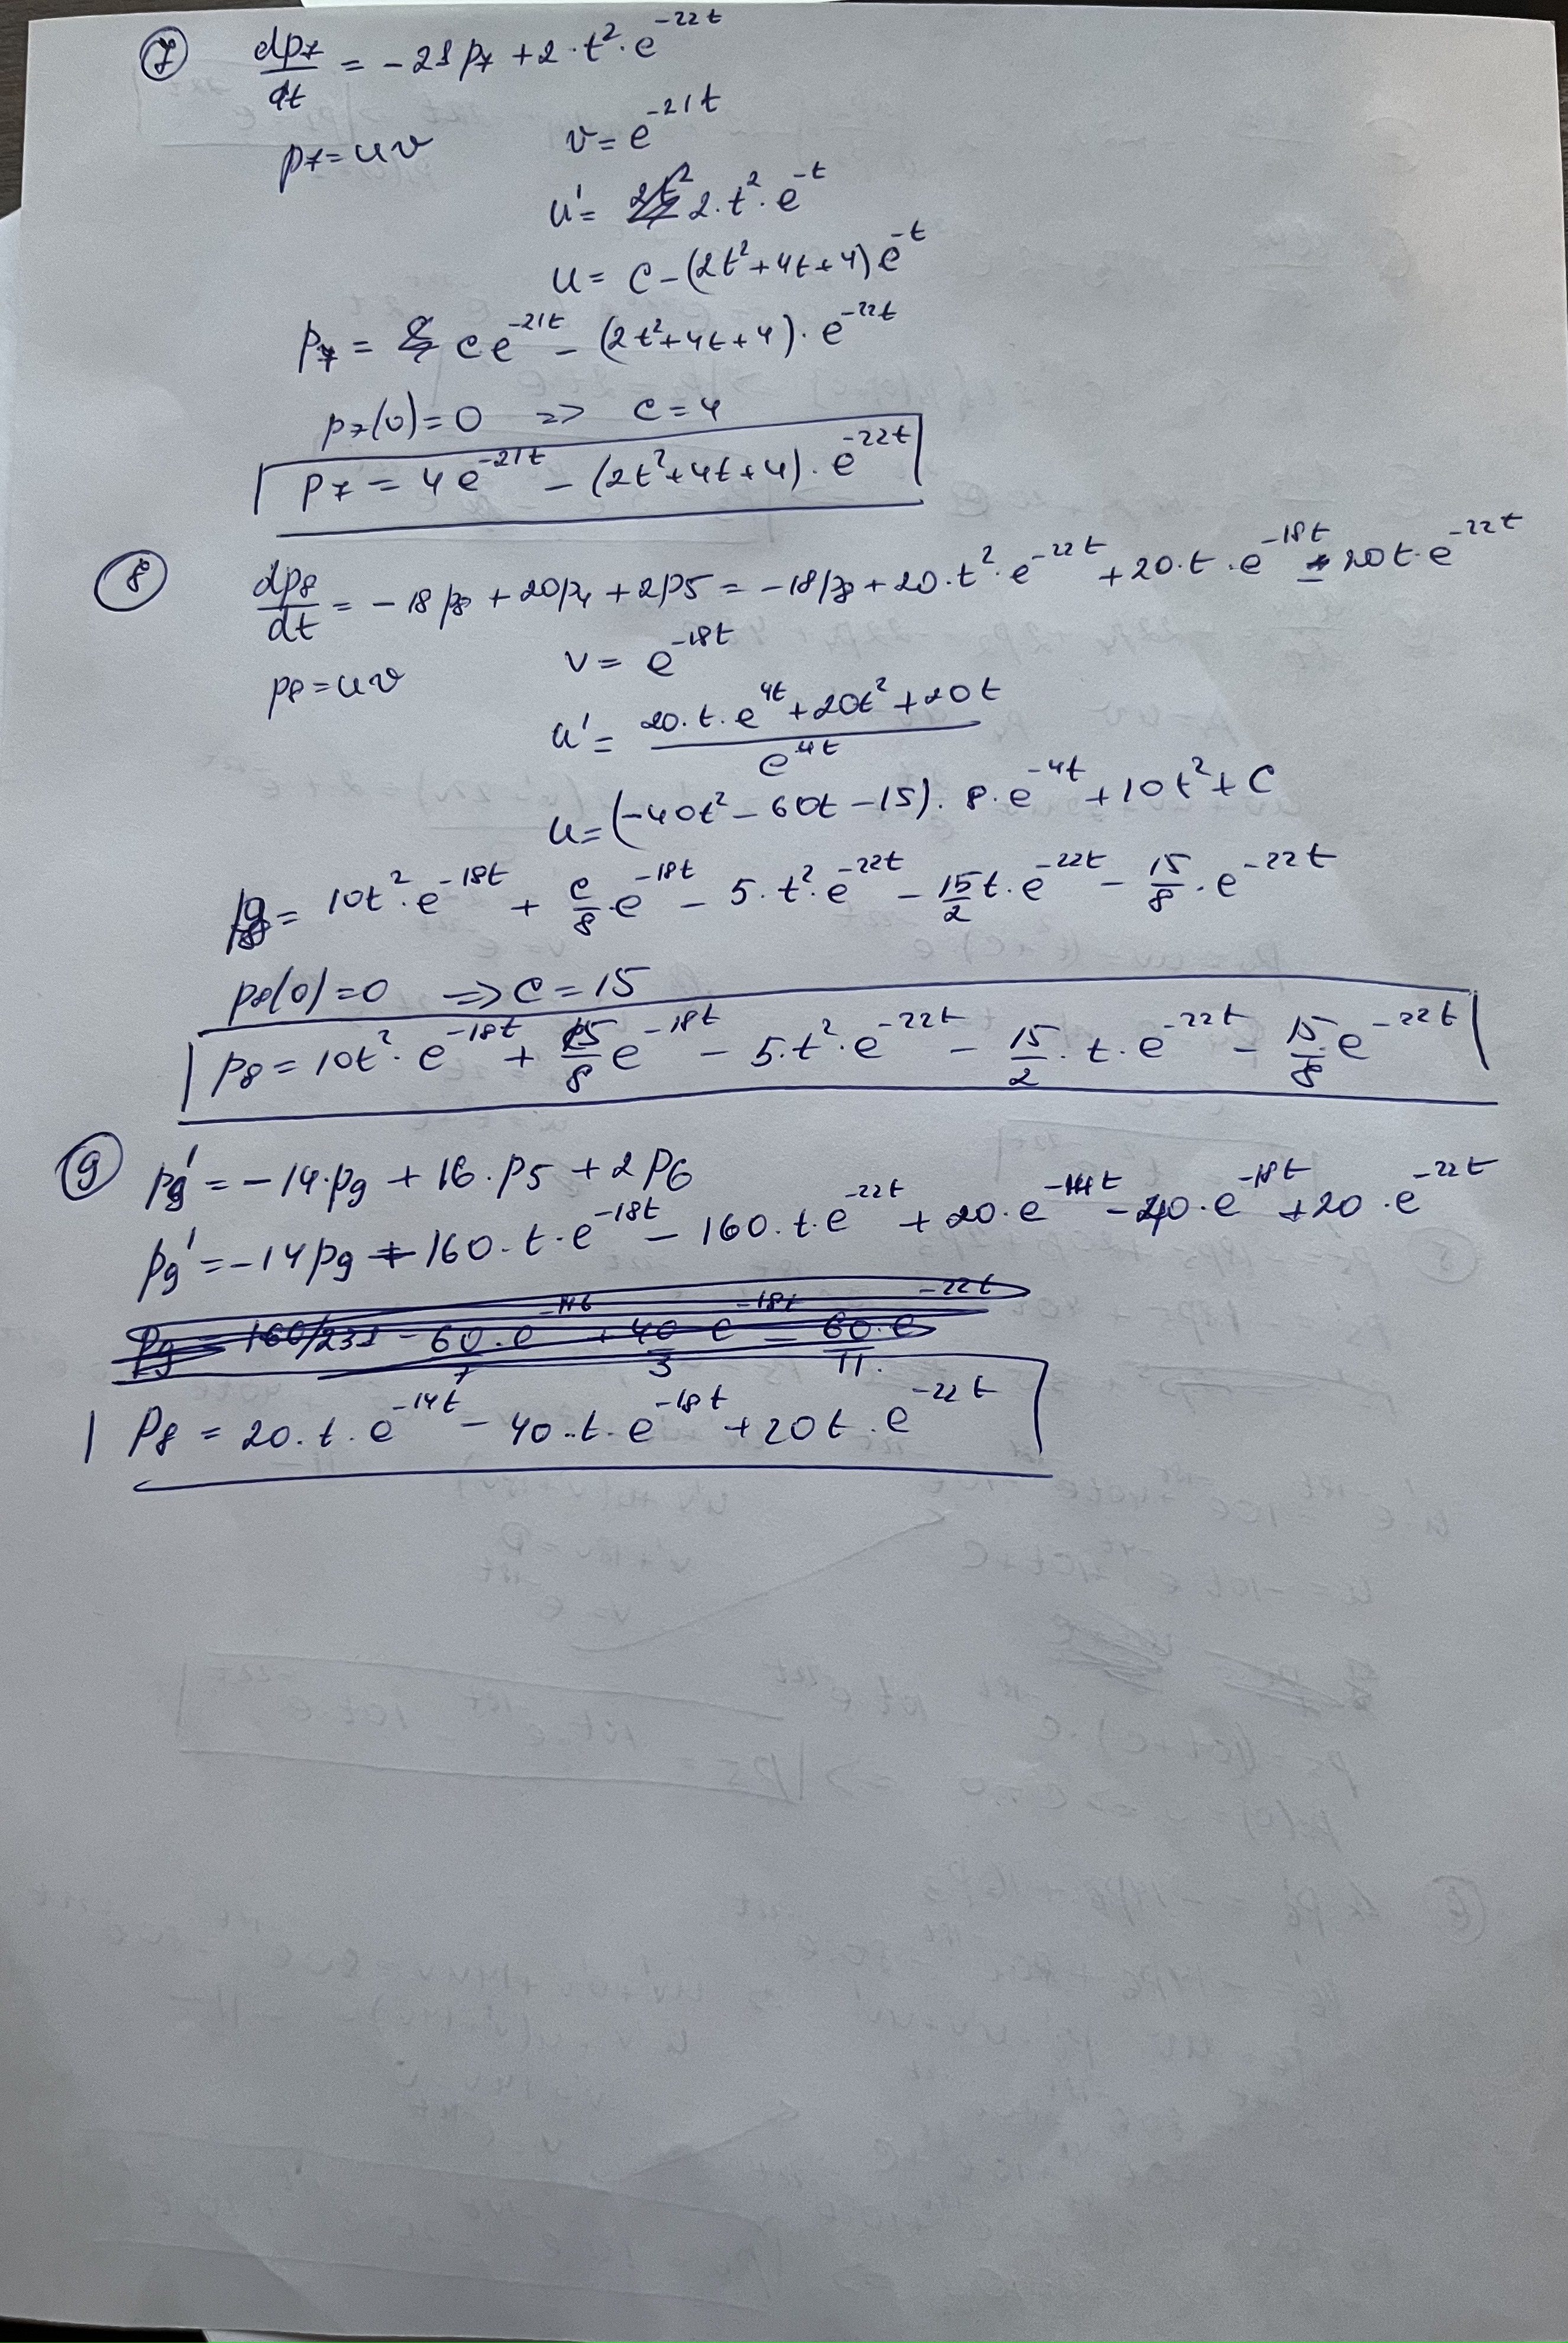 ⑦ dp₇/dt = -21p₇ + 2·t²·e^{-22t}
p₇ = uv v = e^{-21t}
u' = 2·t²·e^{-t}
u = C - (2t²+4t+4)e^{-t}
p₇ = ce^{-21t} - (2t²+4t+4)·e^{-22t}
p₇(0) = 0 => C = 4
p₇ = 4e^{-21t} - (2t²+4t+4)·e^{-22t}
⑧ dp₈/dt = -18p₈ + 20p₄ + 2p5 = -18p₈ + 20·t²·e^{-22t} + 20·t·e^{-18t} - 20t·e^{-22t}
p₈ = uv v = e^{-18t}
u' = (20·t·e^{4t} + 20t² + 20t)/e^{4t}
u = (-40t² - 60t - 15)·8·e^{-4t} + 10t² + C
p₈ = 10t²·e^{-18t} + c/8·e^{-18t} - 5·t²·e^{-22t} - 15/2 t·e^{-22t} - 15/8·e^{-22t}
p₈(0) = 0 => C = 15
p₈ = 10t²·e^{-18t} + 15/8 e^{-18t} - 5·t²·e^{-22t} - 15/2·t·e^{-22t} - 15/8 e^{-22t}
⑨ p₉' = -14·p₉ + 16·p5 + 2p6
p₉' = -14p₉ + 160·t·e^{-18t} - 160·t·e^{-22t} + 20·e^{-14t} - 40·e^{-18t} + 20·e^{-22t}
P₈ = 20·t·e^{-14t} - 40·t·e^{-18t} + 20t·e^{-22t}